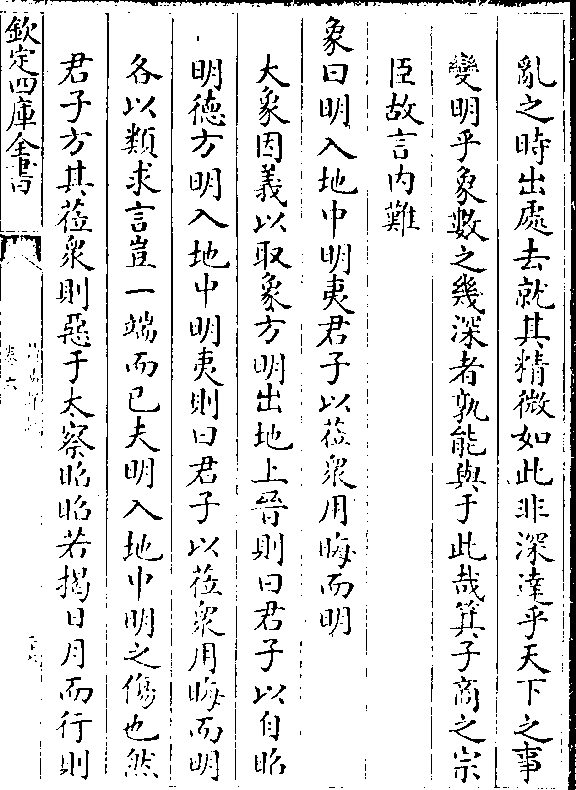 亂之時出處去就其精微如此非深達乎天下之事
變明乎象數之幾深者孰能與于此哉箕子商之宗
臣故言内難
象曰明入地中明夷君子以莅衆用晦而明
大象因義以取象方明出地上晉則曰君子以自昭
明德方明入地中明夷則曰君子以莅衆用晦而明
各以類求言豈一端而已夫明入地中明之傷也然
君子方其莅衆則惡于太察昭昭若揭日月而行則
欽定四庫全書
卷六